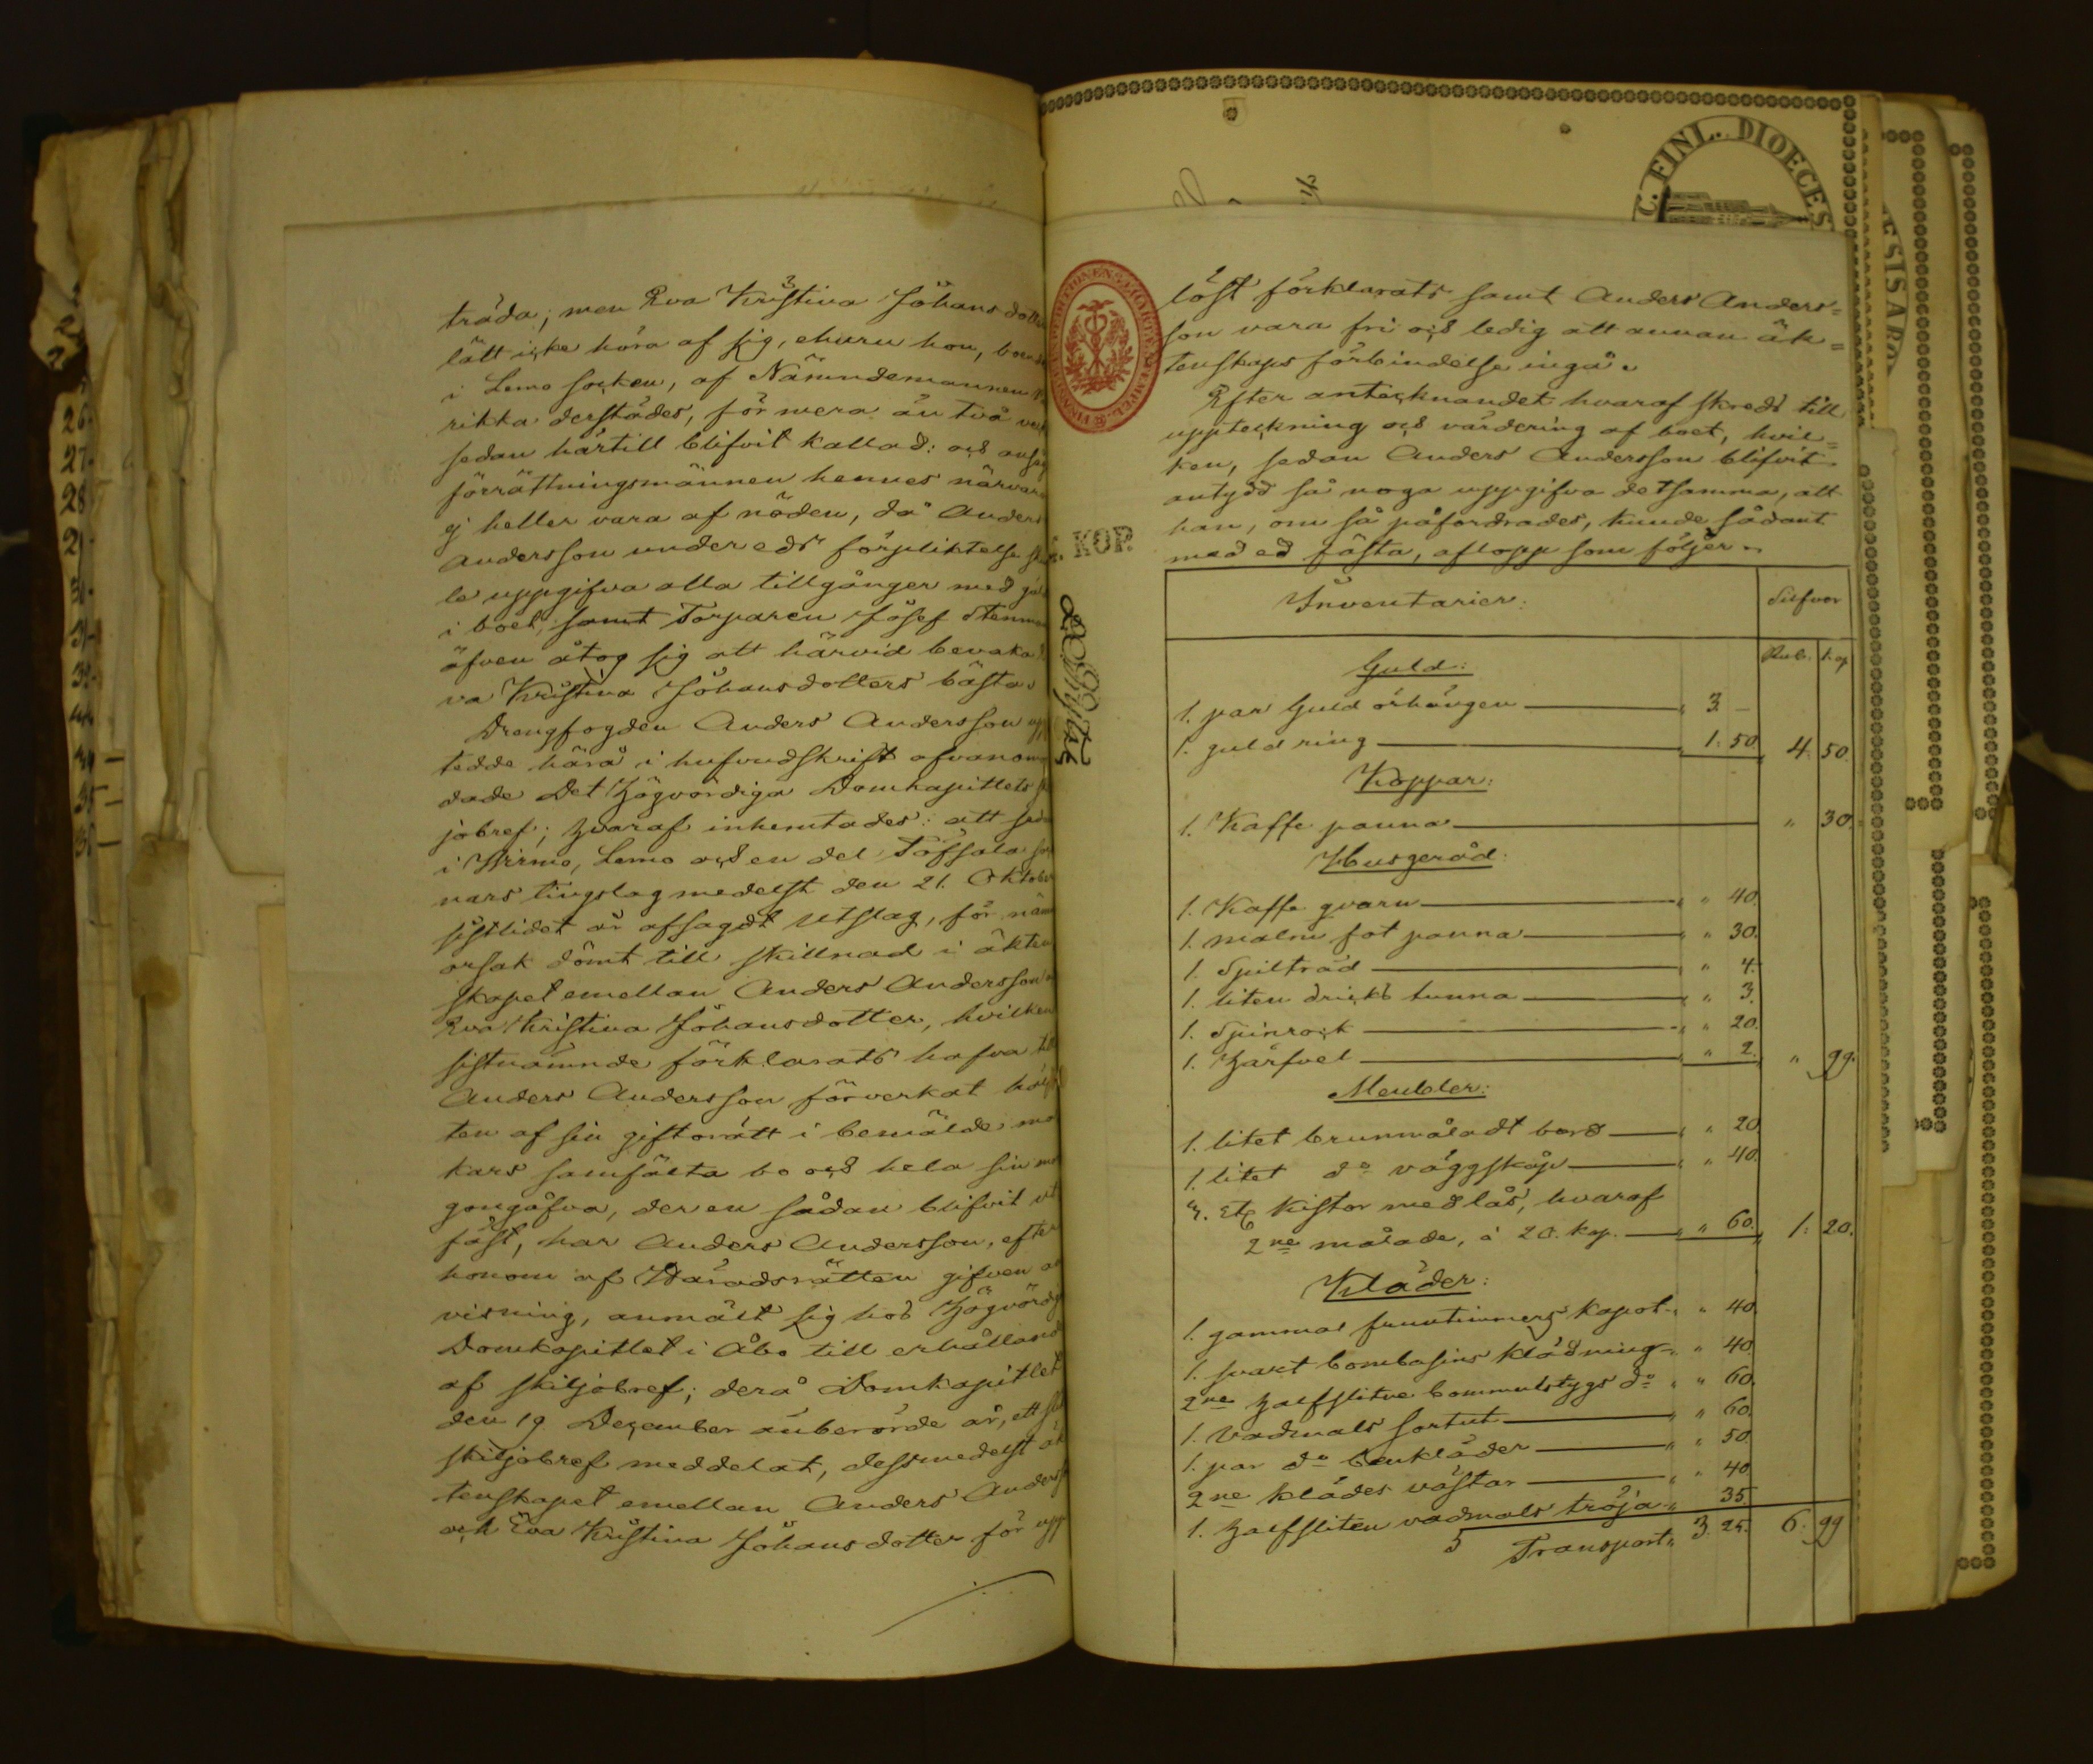 träda; men Eva Kristina Johansdotter
lätt icke höra af sig, ehuru hon, boende
i Lemo socken, af Nämndemannen
rikka derstädes, för mera än två
sedan härtill blifvit kallad: och
förrättningsmännen hennes närvaro
ej heller vara af nöden, då Anders
Andersson under eds förpliktelse
le uppgifva alla tillgånger med
i boet, samt Torparen Josef
äfven åtog sig att härvid bevaka
va Kristina Johansdotters bästa.
Drengfogden Anders Andersson
tedde härå i hufvudskrift
dade Det Högvördiga Domkapitlets
jobref; hvaraf inhemtades: att
i Wirmo, Lemo och en del Töfsala
nars tingslag medelst den 21. Oktober
sistlidet år afsagdt Utslag, för
orsak dömt till skillnad i äkten
skapet emellan Anders Andersson
Eva Kristina Johansdotter, hvilken
sistnämnde förklarats hafva till
Anders Andersson förverkat
ten af sin giftorätt i bemälde ma
kars samfälta bo och hela sin mor
gongåfva, der en sådan blifvit ut
fäst, har Anders Andersson, efter
honom af Häradsrätten gifven an
visning, anmält sig hos Högvördiga
Domkapitlet i Åbo till erhållande
af skiljobref; derå Domkapitlet
den 19 December änberörde år, ett
skiljobref meddelat, dessmedelst äk
tenskapet emellan Anders Anders
och Eva Kristina Johansdotter för upp
C. FINL. DIOECES
SIS AB
KOP.
löst förklarats samt Anders Anders=
son vara fri och ledig att annan äk=
tenskaps förbindelse ingå.
Efter antecknandet hvaraf skreds till
uppteckning och värdering af boet, hvil=
ken, sedan Anders Andersson blifvit
antydd så noga uppgifva detsamma, att
han, om så påfordrades, kunde sådant
med ed fästa, aflopp som följer.
Inventarier: Silfver
Rub. Kop
Guld:
1. par Guld örhängen 3. —
1. guldring 1. 50 4. 50.
Koppar:
1. Kaffe panna " 30.
Husgeråd:
1. Kaffe qvarn " 40.
1. malm fot panna " 30.
1. Spilträd " 4.
1. liten dricks tunna " 3.
1. Spinrock " 20.
1. Härfvel " 2. " 99.
Meubler:
1. litet brunmåladt bord " 20.
1. litet do väggskåp " 40.
3. st. Kistor med lås, hvaraf
2ne målade, á 20. kop. " 60. 1. 20.
Kläder:
1. gammal fruntimmers kapot " 40.
1. svart bombasins klädning " 40.
2ne halfslitne bommulstygs do " 60.
1. Vadmals sortut " 60.
1. par do benkläder " 50.
2ne klädes västar " 40.
1. halfsliten vadmals tröja " 35.
Transport 3. 25. 6. 99